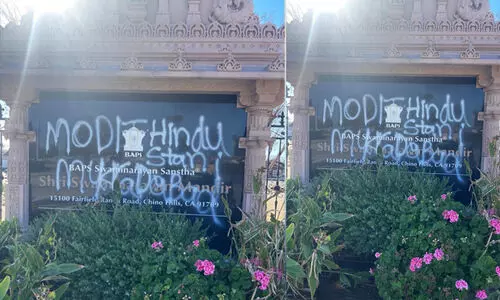 MODI Hindu
Stani
BAPS
BAPS Swaminarayan Sanstha
Shri Swaminarayan Mandir
15100 Fairfield Ranch Road, Chino Hills, CA 91709
MODI Hindu
Stani
BAPS
BAPS Swaminarayan Sanstha
15100 Fairfield Ranch Road, Chino Hills, CA 91709